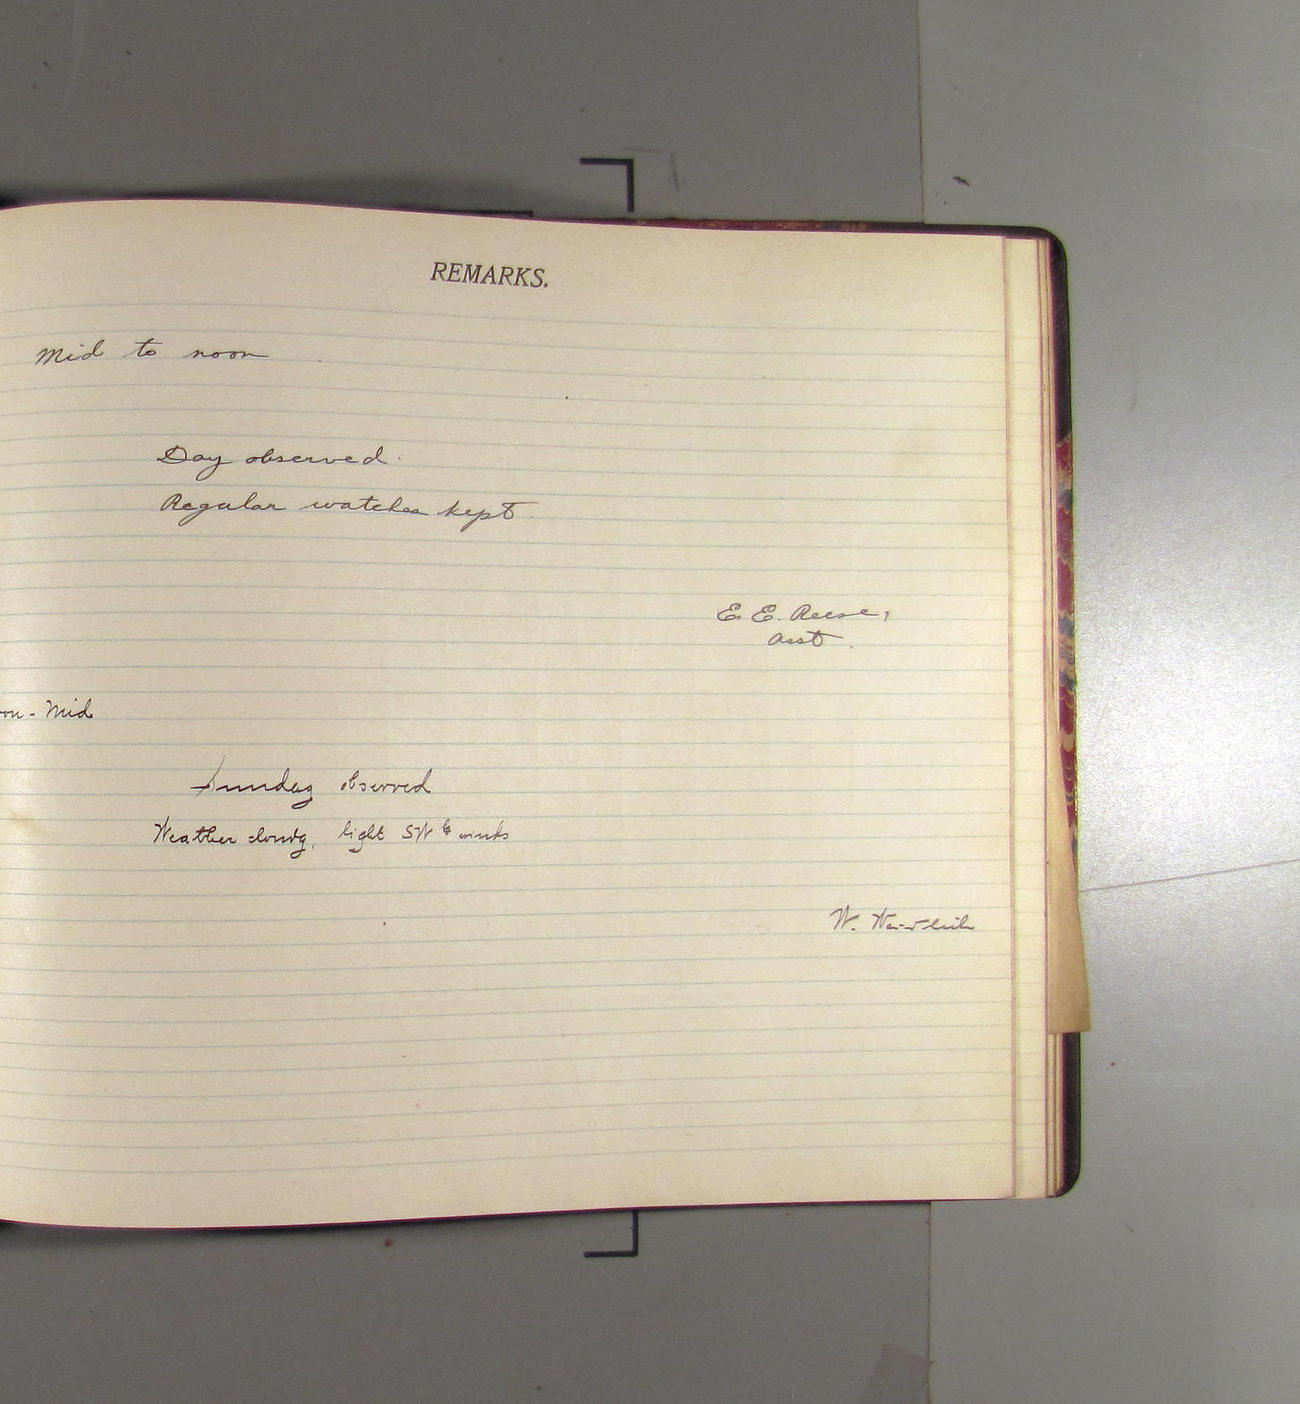 REMARKS.
Mid to noon
Day observed.
Regular watches kept.
E. E. Reese,
Asst.
on - Mid
Sunday observed
Weather cloudy, light SW ly winds
W.